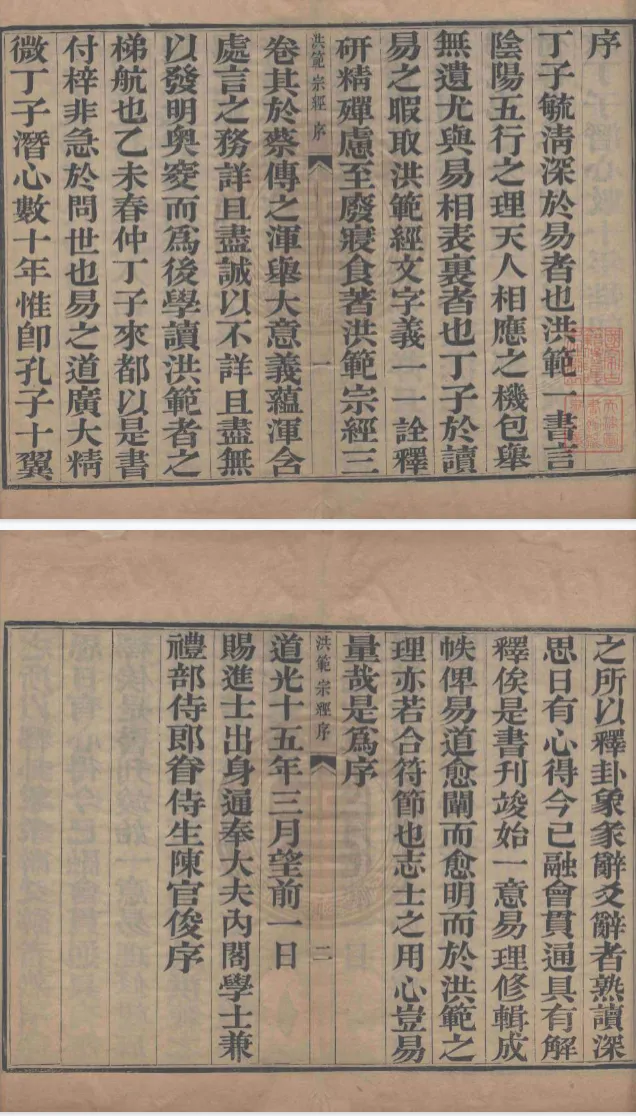 序
丁子毓清深於易者也洪範一書言
陰陽五行之理天人相應之機包舉
無遺尤與易相表裏者也丁子於讀
易之暇取洪範經文字義一一詮釋
研精殫慮至廢寢食著洪範宗經三
洪範宗經序
一
卷其於蔡傳之渾舉大意義蘊渾含
處言之務詳且盡誠以不詳且盡無
以發明奧窔而爲後學讀洪範者之
梯航也乙未春仲丁子來都以是書
付梓非急於問世也易之道廣大精
微丁子潛心數十年惟卽孔子十翼
之所以釋卦象彖辭爻辭者熟讀深
思日有心得今已融會貫通具有解
釋俟是書刊竣始一意易理修輯成
帙俾易道愈闡而愈明而於洪範之
理亦若合符節也志士之用心豈易
量哉是爲序
洪範宗經序
二
道光十五年三月望前一日
賜進士出身通奉大夫內閣學士兼
禮部侍郎眷侍生陳官俊序